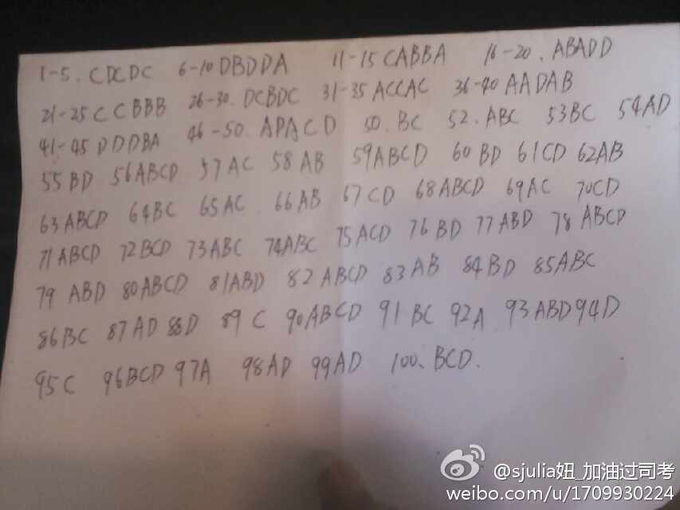 1-5. CDCDC 6-10 DBDDA 11-15 CABBA 16-20. ABADD
21-25 CCBBB 26-30. DCBDC 31-35 ACCAC 36-40 AADAB
41-45 DDDBA 46-50. APACD 50. BC 52. ABC 53BC 54AD
55 BD 56ABCD 57 AC 58 AB 59ABCD 60 BD 61CD 62AB
63 ABCD 64 BC 65 AC 66 AB 67 CD 68 ABCD 69 AC 70CD
71 ABCD 72 BCD 73 ABC 74ABC 75 ACD 76 BD 77 ABD 78 ABCD
79 ABD 80 ABCD 81ABD 82 ABCD 83 AB 84 BD 85ABC
86 BC 87 AD 88D 89 C 90 ABCD 91 BC 92A 93 ABD 94D
95 C 96BCD 97A 98 AD 99AD 100、BCD.
@sjulia妞_加油过司考
weibo.com/u/1709930224